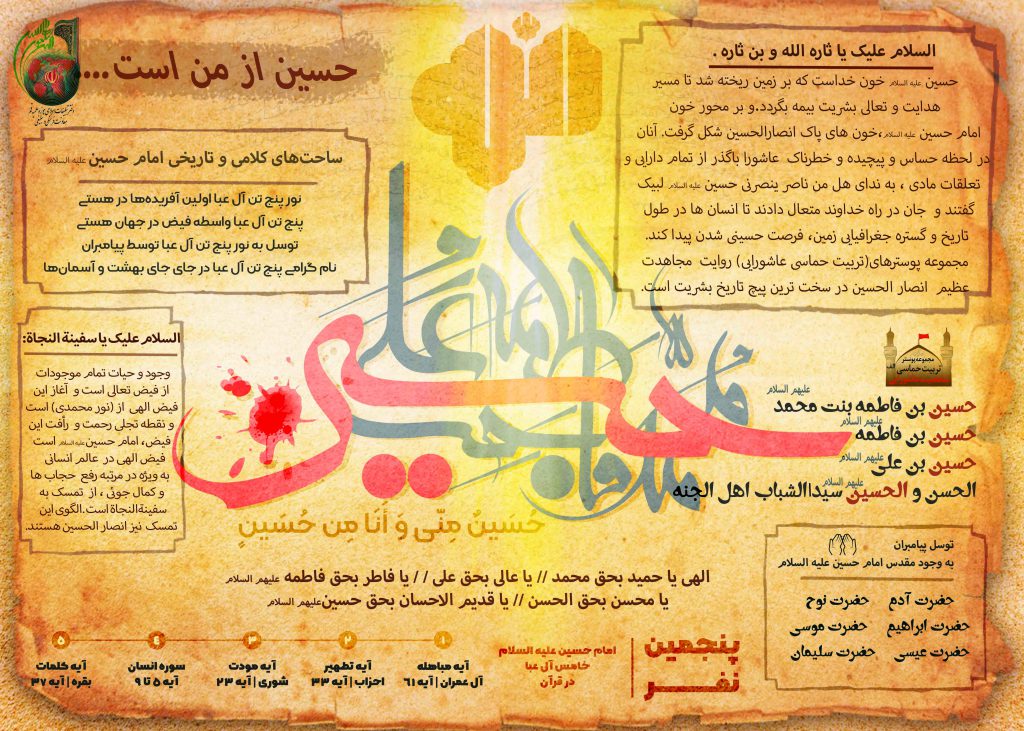 حسین از من است....
السلام علیک یا ثاره الله و بن ثاره .
حسین علیه السلام خون خداست که بر زمین ریخته شد تا مسیر
هدایت و تعالی بشریت بیمه بگردد.و بر محور خون
امام حسین علیه السلام ،خون های پاک انصارالحسین شکل گرفت. آنان
در لحظه حساس و پیچیده و خطرناک عاشورا باگذر از تمام دارایی و
تعلقات مادی ، به ندای هل من ناصر ینصرنی حسین علیه السلام لبیک
گفتند و جان در راه خداوند متعال دادند تا انسان ها در طول
تاریخ و گستره جغرافیایی زمین، فرصت حسینی شدن پیدا کند.
مجموعه پوسترهای(تربیت حماسی عاشورایی) روایت مجاهدت
عظیم انصار الحسین در سخت ترین پیچ تاریخ بشریت است.
ساحت‌های کلامی و تاریخی امام حسین علیه السلام
نور پنج تن آل عبا اولین آفریده‌ها در هستی
پنج تن آل عبا واسطه فیض در جهان هستی
توسل به نور پنج تن آل عبا توسط پیامبران
نام گرامی پنج تن آل عبا در جای جای بهشت و آسمان‌ها
السلام علیک یا سفینة النجاة:
وجود و حیات تمام موجودات
از فیض تعالی است و آغاز این
فیض الهی از (نور محمدی) است
و نقطه تجلی رحمت و رأفت این
فیض، امام حسین علیه السلام است
فیض الهی در عالم انسانی
به ویژه در مرتبه رفع حجاب ها
و کمال جوئی ، از تمسک به
سفینةالنجاة است.الگوی این
تمسک نیز انصار الحسین هستند.
حسین
مجموعه پوستر
تربیت حماسی
حسین بن فاطمه بنت محمد علیهم السلام
حسین بن فاطمه علیهم السلام
حسین بن علی علیهم السلام
الحسن و الحسین سیدالشباب اهل الجنه علیهم السلام
حُسَینٌ مِنّی وَ أَنَا مِن حُسَینٍ
توسل پیامبران
به وجود مقدس امام حسین علیه السلام
حضرت آدم حضرت نوح
حضرت ابراهیم حضرت موسی
حضرت عیسی حضرت سلیمان
الهی یا حمید بحق محمد // یا عالی بحق علی // یا فاطر بحق فاطمه علیهم السلام
یا محسن بحق الحسن // یا قدیم الاحسان بحق حسین علیهم السلام
پنجمین
نفر
امام حسین علیه السلام
خامس آل عبا
در قرآن
۱ ۲ ۳ ۴ ۵
آیه مباهله آیه تطهیر آیه مودت سوره انسان آیه کلمات
آل عمران | آیه ۶۱ احزاب | آیه ۳۳ شوری | آیه ۲۳ آیه ۵ تا ۹ بقره | آیه ۳۷